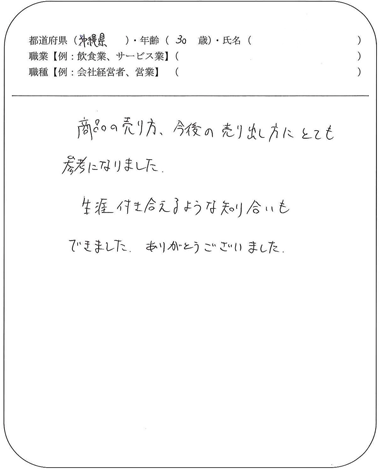 都道府県（沖縄県　）・年齢（30　歳）・氏名（　）
職業【例：飲食業、サービス業】（　）
職種【例：会社経営者、営業】（　）
商品の売り方、今後の売り出し方にとても
参考になりました.
生涯付き合えるような知り合いも
できました. ありがとうございました.